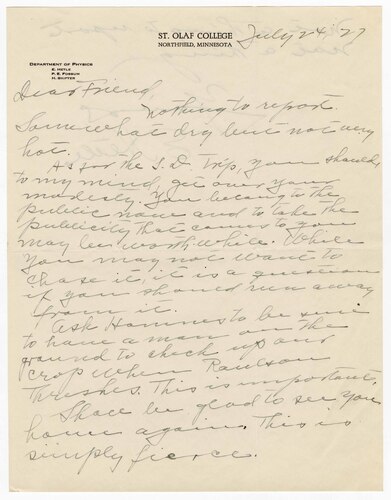 ST. OLAF COLLEGE
NORTHFIELD, MINNESOTA
July 24 '27
DEPARTMENT OF PHYSICS
E. HETLE
P. E. FOSSUM
H. SHIPTER
Dear Friend
Nothing to report.
Somewhat dry but not very
hot.
As for the S.D. trip, you should
to my mind, get over your
modesty. You belong to the
public now and to take the
publicity that comes to you
may be worth while. While
you may not want to
chase it, it is a question
if you should run away
from it.
Ask Hommes to be sure
to have a man on the
ground to check up our
crop when Paulson
threshes. This is important.
Shall be glad to see you
home again. This is
simply fierce.